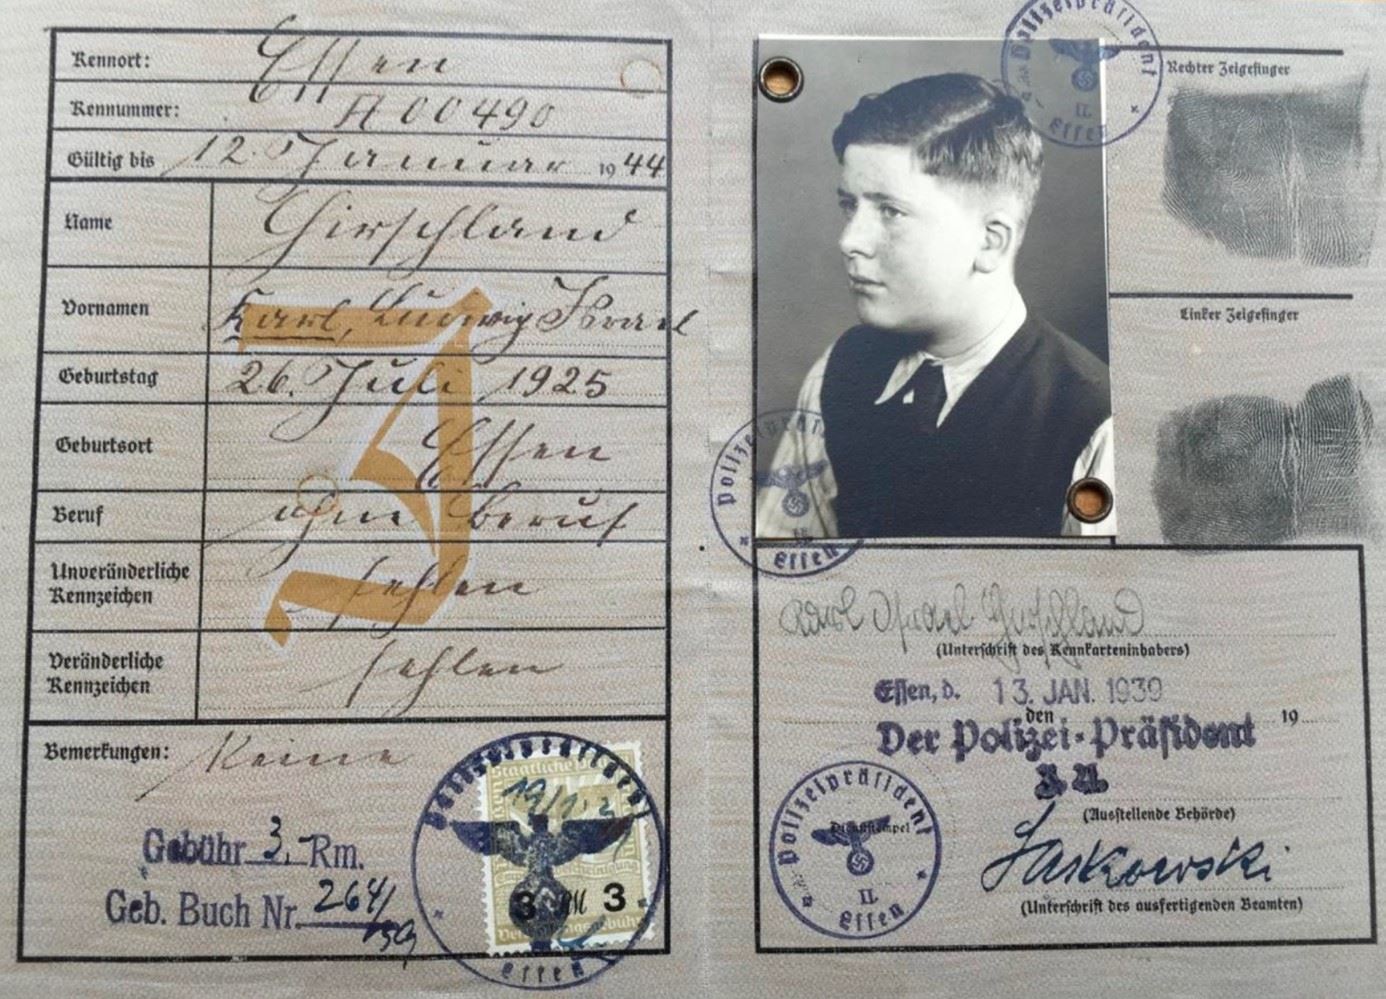 Kennort: Essen
Kennummer: A 00490
Gültig bis 12. Januar 1944
Name Hirschland
Vornamen Karl, Ludwig Israel
Geburtstag 26. Juli 1925
Geburtsort Essen
Beruf ohne Beruf
Unveränderliche
Kennzeichen fehlen
Veränderliche
Kennzeichen fehlen
Bemerkungen: Keine
J
Gebühr 3,- Rm.
Geb. Buch Nr. 264/
39
Polizeipräsident
Essen
Staatliche
3 RM 3
Verwaltungsgebühr
Polizeipräsident
II.
Essen
Rechter Zeigefinger
Linker Zeigefinger
Polizeipräsident
II.
Essen
Karl Israel Hirschland
(Unterschrift des Kennkarteninhabers)
Essen, d. 13. JAN. 1939
den 19
Der Polizei-Präsident
(Ausstellende Behörde)
Polizeipräsident
Dienststempel
II.
Essen
(Unterschrift des ausfertigenden Beamten)